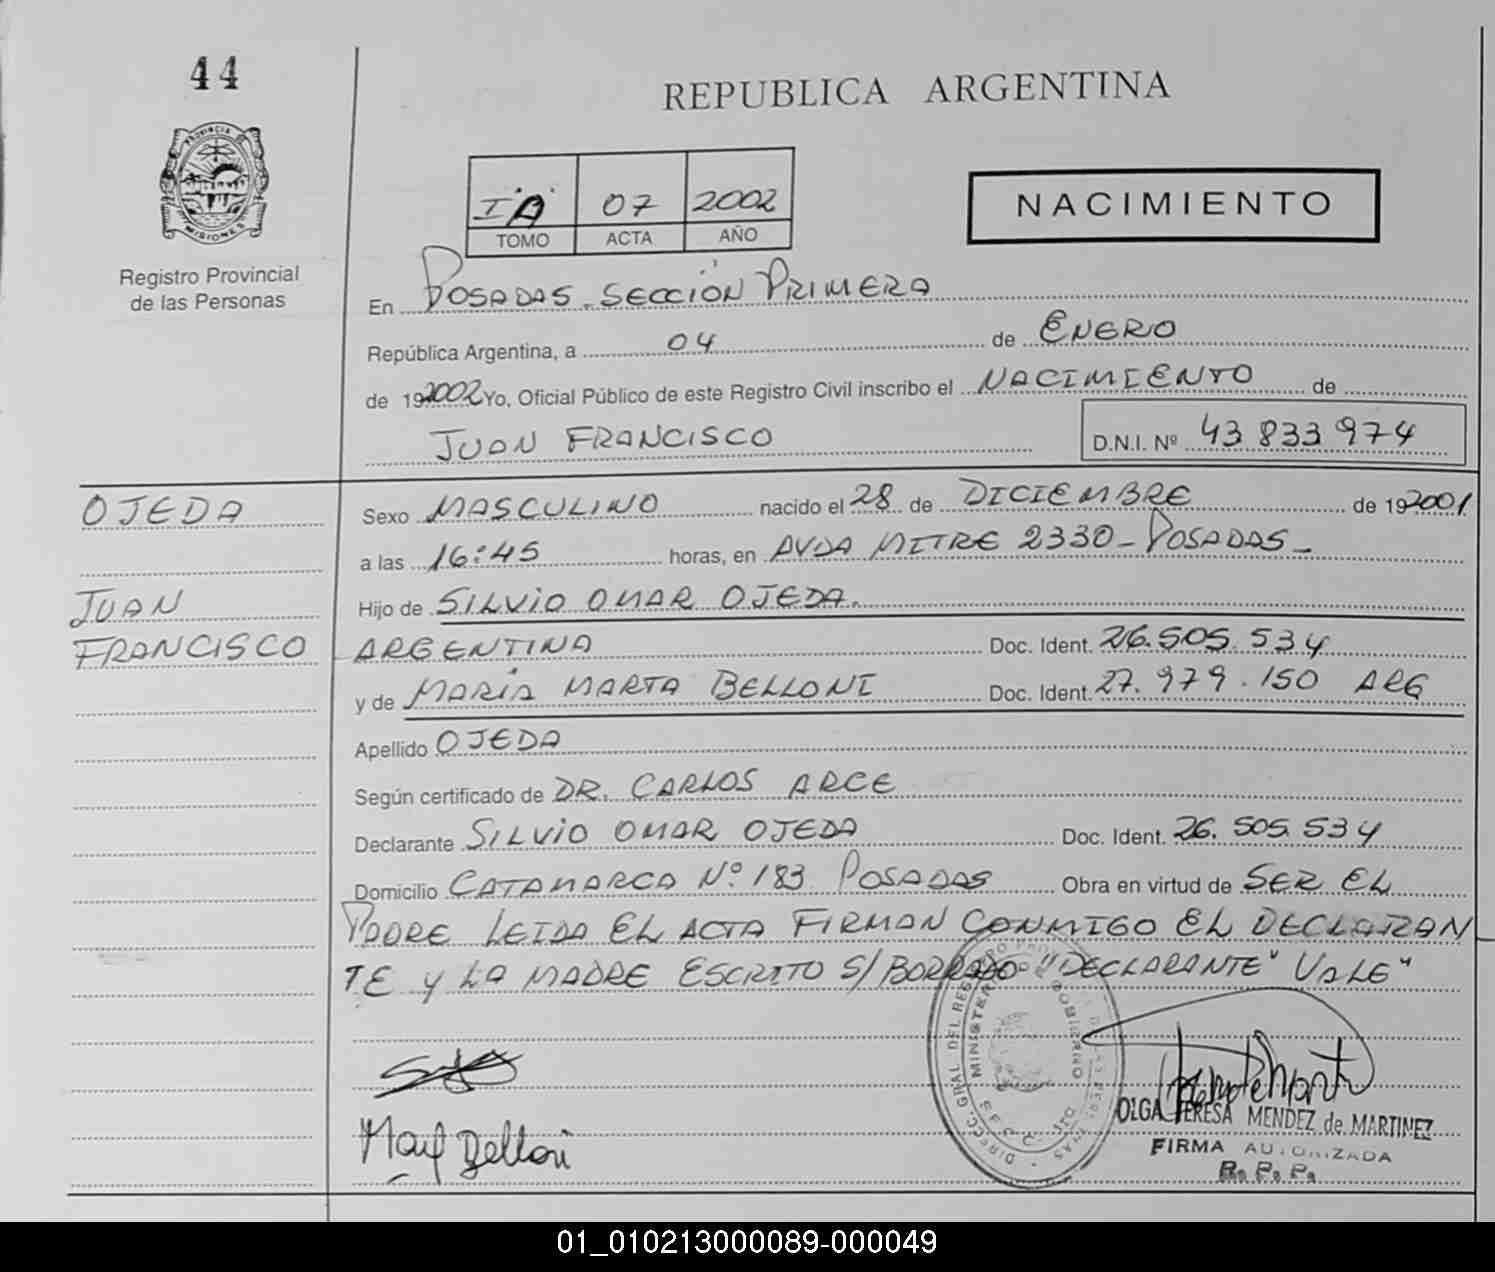 44
REPUBLICA ARGENTINA
PROVINCIA DE
MISIONES
Registro Provincial
de las Personas
I "A" 07 2002
TOMO ACTA AÑO
NACIMIENTO
En POSADAS - SECCIÓN PRIMERA
República Argentina, a 04 de ENERO
de 192002 Yo, Oficial Público de este Registro Civil inscribo el NACIMIENTO de
JUAN FRANCISCO D.N.I. Nº 43 833 974
OJEDA
JUAN
FRANCISCO
Sexo MASCULINO nacido el 28 de DICIEMBRE de 192001
a las 16:45 horas, en AVDA MITRE 2330 - POSADAS -
Hijo de SILVIO OMAR OJEDA.
ARGENTINA Doc. Ident. 26.505.534
y de MARÍA MARTA BELLONI Doc. Ident. 27.979.150 ARG
Apellido OJEDA
Según certificado de DR. CARLOS ARCE
Declarante SILVIO OMAR OJEDA Doc. Ident. 26.505.534
Domicilio CATAMARCA Nº 183 POSADAS Obra en virtud de SER EL
PADRE LEIDA EL ACTA FIRMAN CONMIGO EL DECLARAN
TE y LA MADRE ESCRITO S/ BORRADO "DECLARANTE" VALE"
DIRECC. GRAL. DEL REGISTRO
MINISTERIO GOBIERNO
OLGA TERESA MENDEZ de MARTINEZ
FIRMA AUTORIZADA
R. P. P.
01_010213000089-000049